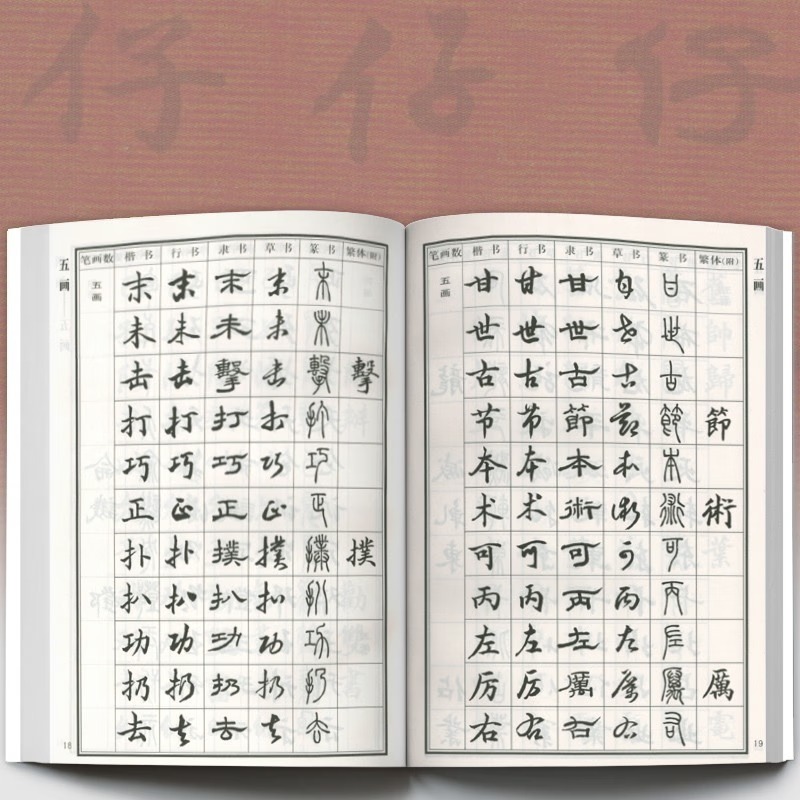 仔 仔 仔
五画
笔画数 楷书 行书 隶书 草书 篆书 繁体(附)
五画 末 末 末 末 末
未 未 未 未 未
击 击 擊 击 擊 擊
打 打 打 打 打
巧 巧 巧 巧 巧
正 正 正 正 正
扑 扑 撲 撲 撲 撲
扒 扒 扒 扒 扒
功 功 功 功 功
扔 扔 扔 扔 扔
去 去 去 去 去
18
五画
笔画数 楷书 行书 隶书 草书 篆书 繁体(附)
五画 甘 甘 甘 甘 甘
世 世 世 世 世
古 古 古 古 古
节 节 節 节 節 節
本 本 本 本 本
术 术 術 術 術 術
可 可 可 可 可
丙 丙 丙 丙 丙
左 左 左 左 左
厉 厉 厲 厲 厲 厲
右 右 右 右 右
19